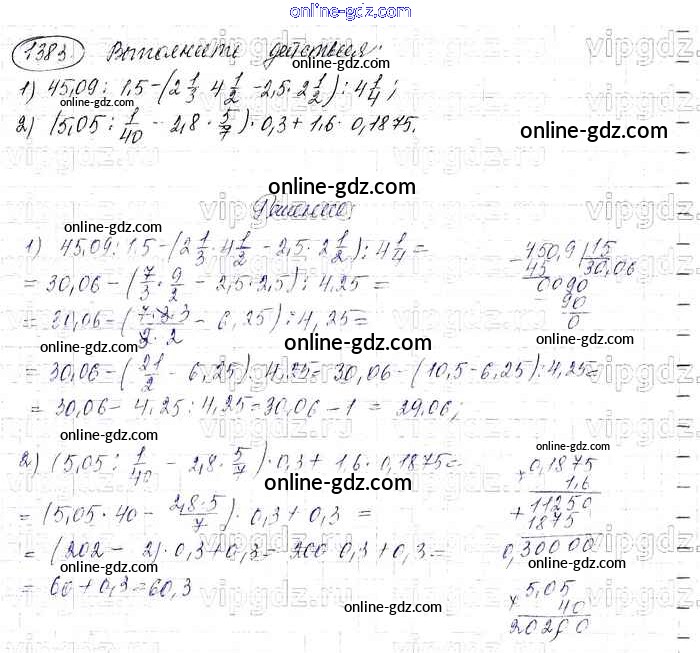 online-gdz.com
1383 Выполните действия:
1) 45,09 : 1,5 - (2 1/3 · 4 1/2 - 2,5 · 2 1/2) : 4 1/4;
online-gdz.com
2) (5,05 : 1/40 - 2,8 · 5/7) · 0,3 + 1,6 · 0,1875.
online-gdz.com
online-gdz.com
online-gdz.com
Решение:
online-gdz.com
1) 45,09 : 1,5 - (2 1/3 · 4 1/2 - 2,5 · 2 1/2) : 4 1/4 =
= 30,06 - (7/3 · 9/2 - 2,5 · 2,5) : 4,25 =
= 30,06 - (7·3·3/3·2 - 6,25) : 4,25 =
= 30,06 - (21/2 - 6,25) : 4,25 = 30,06 - (10,5 - 6,25) : 4,25 =
= 30,06 - 4,25 : 4,25 = 30,06 - 1 = 29,06;
450,9 | 15
45 | 30,06
0090
90
0
online-gdz.com
online-gdz.com
online-gdz.com
online-gdz.com
online-gdz.com
2) (5,05 : 1/40 - 2,8 · 5/7) · 0,3 + 1,6 · 0,1875 =
= (5,05 · 40 - 2,8·5/7) · 0,3 + 0,3 =
= (202 - 2) · 0,3 + 0,3 = 200 · 0,3 + 0,3 =
= 60 + 0,3 = 60,3
× 0,1875
1,6
+ 11250
1875
0,30000
× 5,05
40
20200
online-gdz.com
online-gdz.com
online-gdz.com
online-gdz.com
online-gdz.com
online-gdz.com